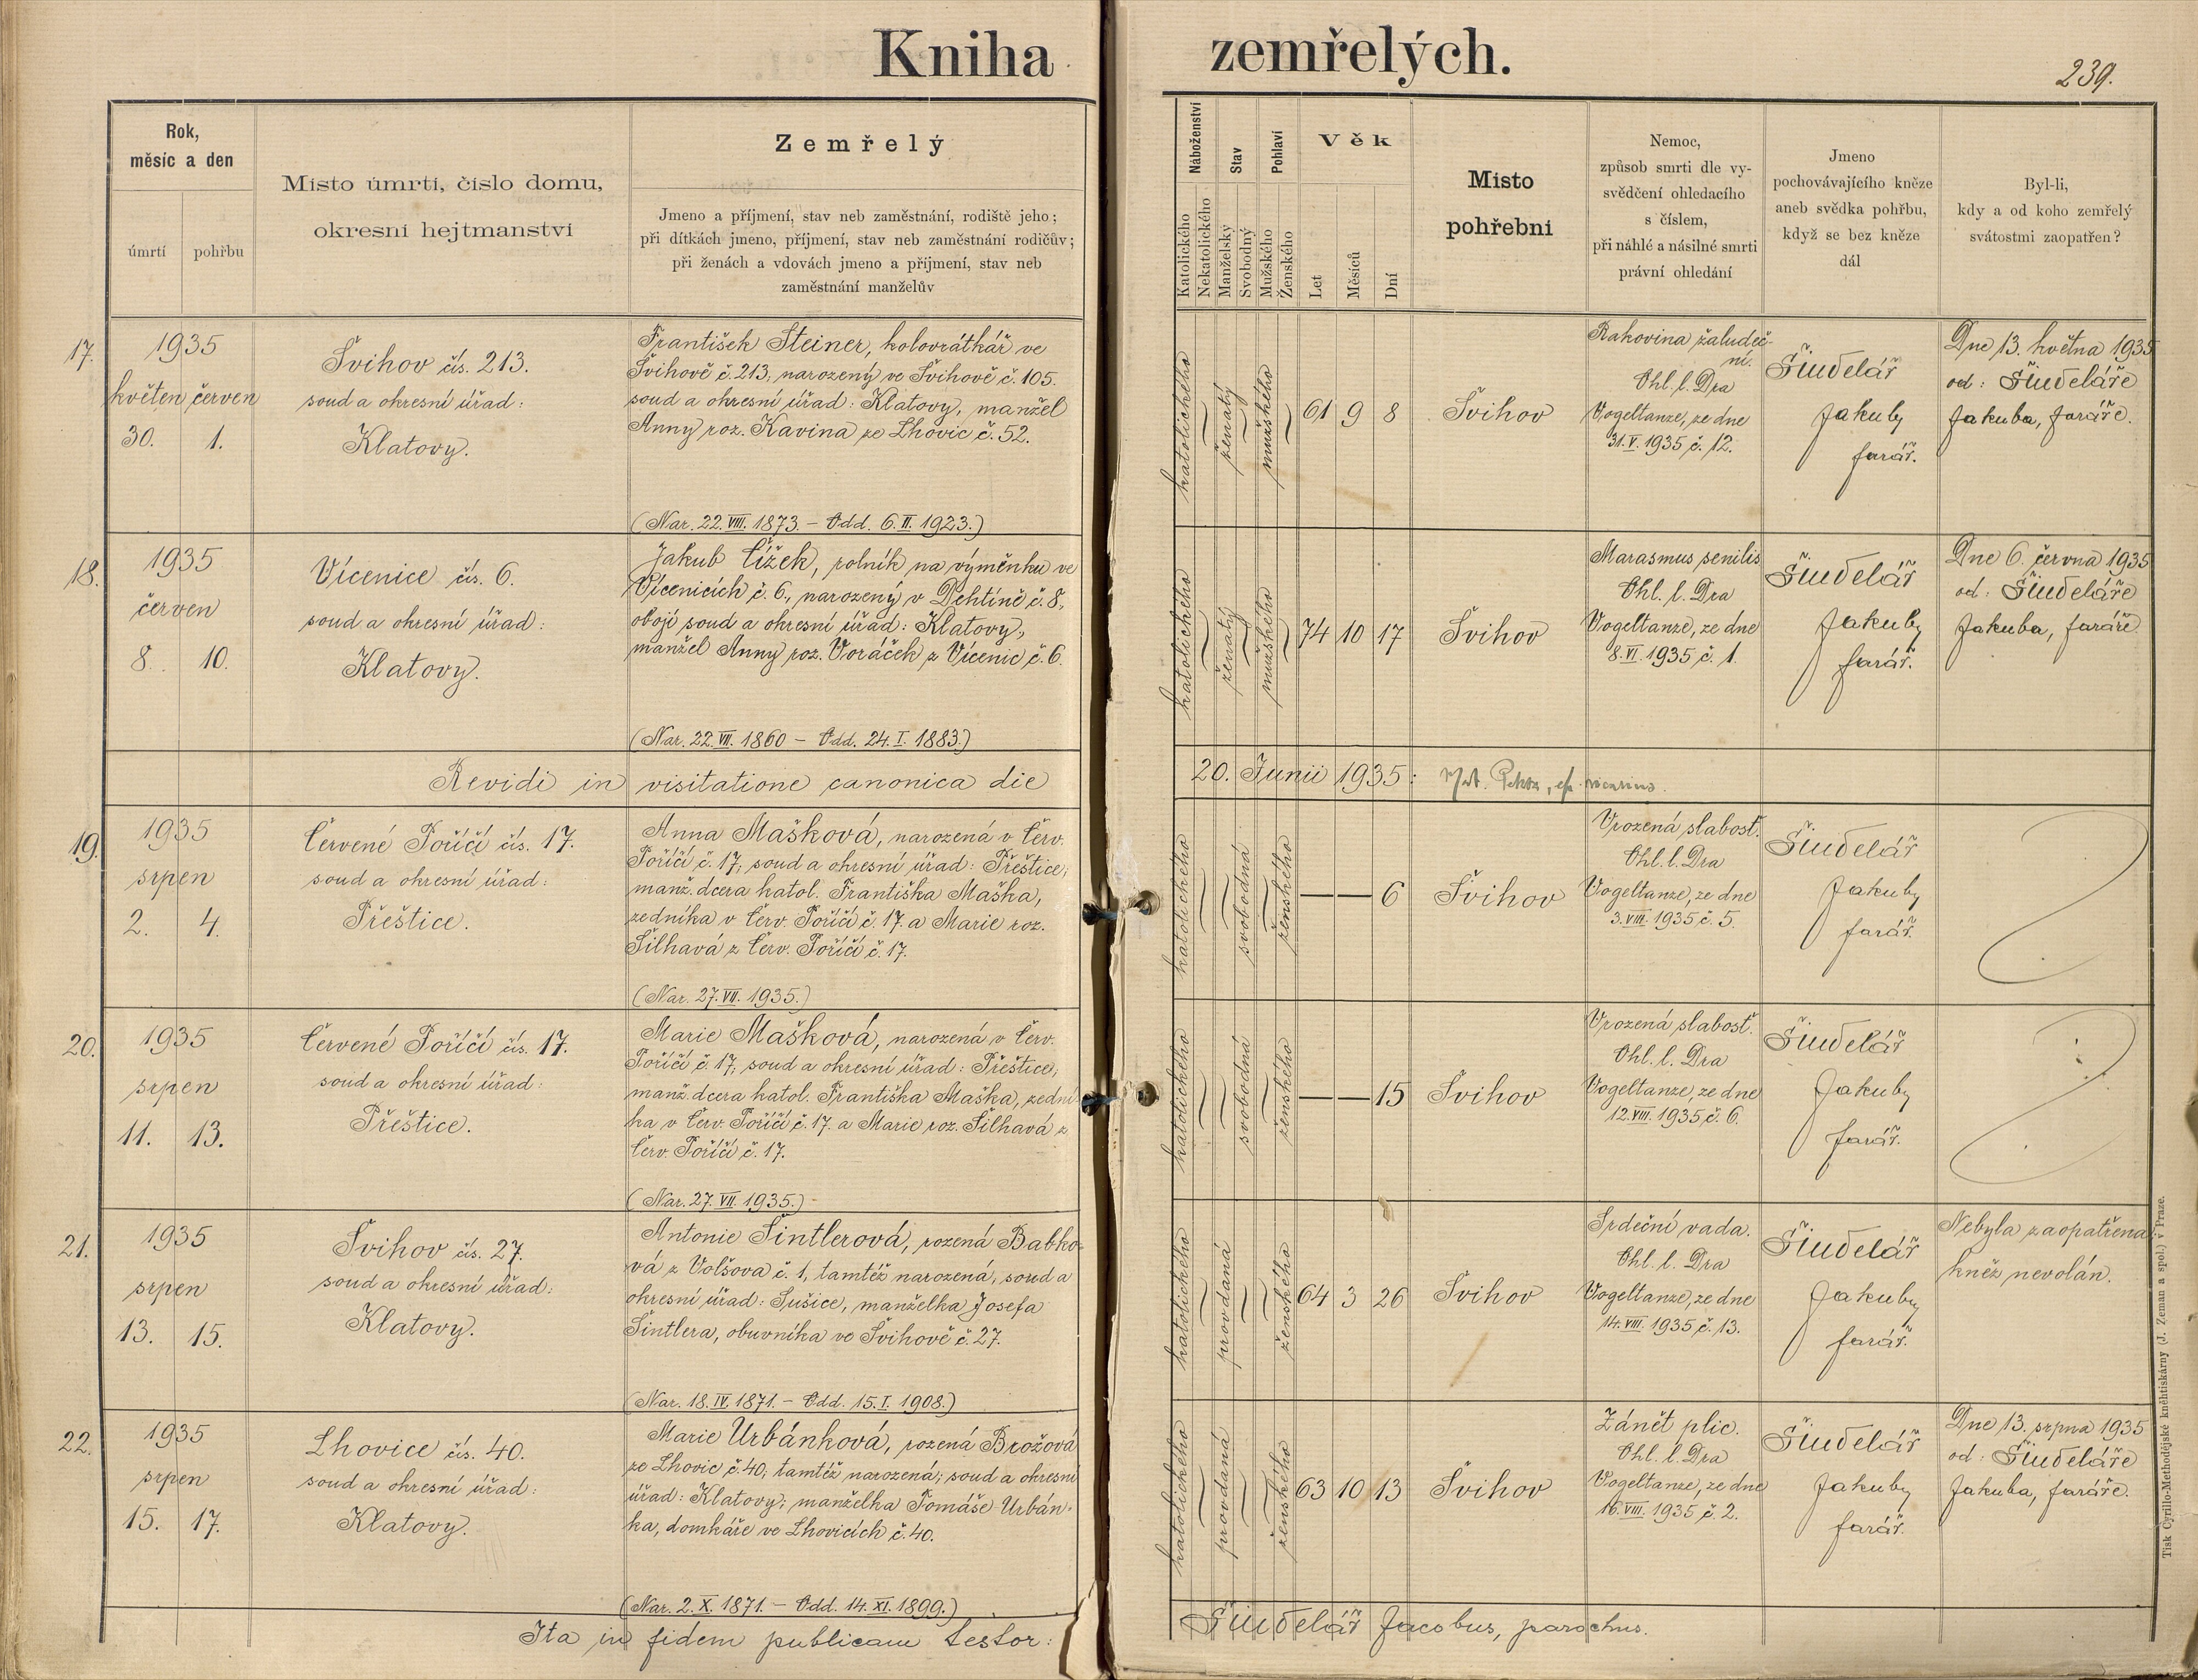 Kniha zemřelých.
239.
Rok,
měsíc a den
úmrtí
pohřbu
Místo úmrtí, číslo domu,
okresní hejtmanství
Zemřelý
Jmeno a příjmení, stav neb zaměstnání, rodiště jeho;
při dítkách jmeno, příjmení, stav neb zaměstnání rodičův;
při ženách a vdovách jmeno a příjmení, stav neb
zaměstnání manželův
Náboženství
Katolického
Nekatolického
Stav
Manželský
Svobodný
Pohlaví
Mužského
Ženského
Věk
Let
Měsíců
Dní
Místo
pohřební
Nemoc,
způsob smrti dle vy-
svědčení ohledacího
s číslem,
při náhlé a násilné smrti
právní ohledání
Jmeno
pochovávajícího kněze
aneb svědka pohřbu,
když se bez kněze
dál
Byl-li,
kdy a od koho zemřelý
svátostmi zaopatřen?
17.
1935
květen červen
30. 1.
Švihov čís. 213.
soud a okresní úřad:
Klatovy.
František Steiner, kolovrátkář ve
Švihově č. 213, narozený ve Švihově č. 105.
soud a okresní úřad: Klatovy, manžel
Anny roz. Kavina ze Lhovic č. 52.
(Nar. 22. VIII. 1873. – Odd. 6. II. 1923.)
katolického
ženatý
mužského
61 9 8
Švihov
Rakovina žaludeč-
ní.
Ohl. l. Dra
Vogeltanze, ze dne
31. V. 1935 č. 12.
Šindelář
Jakub,
farář.
Dne 13. května 1935
od: Šindeláře
Jakuba, faráře.
18.
1935
červen
8. 10.
Vícenice čís. 6.
soud a okresní úřad:
Klatovy.
Jakub Čížek, rolník na výměnku ve
Vícenicích č. 6., narozený v Dehtíně č. 8,
obojí soud a okresní úřad: Klatovy,
manžel Anny roz. Voráček z Vícenic č. 6.
(Nar. 22. VII. 1860 – Odd. 24. I. 1883.)
katolického
ženatý
mužského
74 10 17
Švihov
Marasmus senilis
Ohl. l. Dra
Vogeltanze, ze dne
8. VI. 1935 č. 1.
Šindelář
Jakub,
farář.
Dne 6. června 1935
od: Šindeláře
Jakuba, faráře.
Revidi in visitatione canonica die 20. Junii 1935:
vicarius.
19.
1935
srpen
2. 4.
Červené Poříčí čís. 17.
soud a okresní úřad:
Přeštice.
Anna Mašková, narozená v Červ.
Poříčí č. 17, soud a okresní úřad: Přeštice,
manž. dcera katol. Františka Maška,
zedníka v Červ. Poříčí č. 17. a Marie roz.
Šilhavá z Červ. Poříčí č. 17.
(Nar. 27. VII. 1935.)
katolického
svobodná
ženského
— — 6
Švihov
Vrozená slabosť.
Ohl. l. Dra
Vogeltanze, ze dne
3. VIII. 1935 č. 5.
Šindelář
Jakub,
farář.
20.
1935
srpen
11. 13.
Červené Poříčí čís. 17.
soud a okresní úřad:
Přeštice.
Marie Mašková, narozená v Červ.
Poříčí č. 17, soud a okresní úřad: Přeštice,
manž. dcera katol. Františka Maška, zední-
ka v Červ. Poříčí č. 17. a Marie roz. Šilhavá z
Červ. Poříčí č. 17.
(Nar. 27. VII. 1935.)
katolického
svobodná
ženského
— — 15
Švihov
Vrozená slabosť.
Ohl. l. Dra
Vogeltanze, ze dne
12. VIII. 1935 č. 6.
Šindelář
Jakub,
farář.
21.
1935
srpen
13. 15.
Švihov čís. 27.
soud a okresní úřad:
Klatovy.
Antonie Šintlerová, rozená Babko-
vá z Volšova č. 1, tamtéž narozená, soud a
okresní úřad: Sušice, manželka Josefa
Šintlera, obuvníka ve Švihově č. 27.
(Nar. 18. IV. 1871. – Odd. 15. I. 1908.)
katolického
provdaná
ženského
64 3 26
Švihov
Srdeční vada.
Ohl. l. Dra
Vogeltanze, ze dne
14. VIII. 1935 č. 13.
Šindelář
Jakub,
farář.
Nebyla zaopatřena,
kněz nevolán.
22.
1935
srpen
15. 17.
Lhovice čís. 40.
soud a okresní úřad:
Klatovy.
Marie Urbánková, rozená Brožová
ze Lhovic č. 40, tamtéž narozená; soud a okresní
úřad: Klatovy; manželka Tomáše Urbán-
ka, domkáře ve Lhovicích č. 40.
(Nar. 2. X. 1871. – Odd. 14. XI. 1899.)
katolického
provdaná
ženského
63 10 13
Švihov
Zánět plic.
Ohl. l. Dra
Vogeltanze, ze dne
16. VIII. 1935 č. 2.
Šindelář
Jakub,
farář.
Dne 13. srpna 1935
od: Šindeláře
Jakuba, faráře.
Ita in fidem publicam testor: Šindelář Jacobus, parochus.
Tisk Cyrillo-Methodějské kněhtiskárny (J. Zeman a spol.) v Praze.